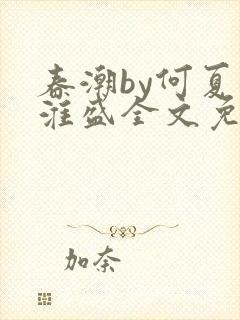 春潮by何夏
淮盛全文免
加奈